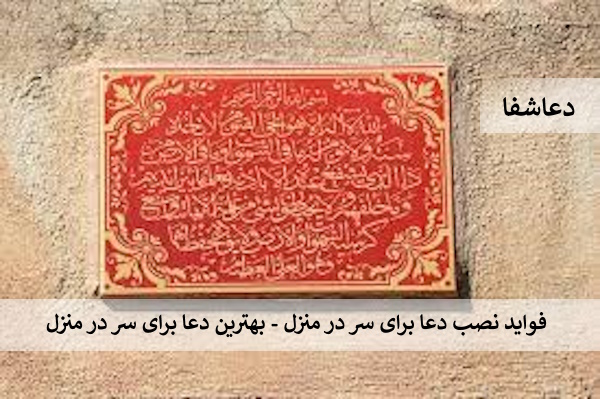 دعاشفا
بسم الله الرحمن الرحيم
الله لا اله الا هو الحي القيوم لا تأخذه
سنة ولا نوم له ما في السموات وما في الارض من
ذا الذي يشفع عنده الا باذنه يعلم ما بين ايديهم
وما خلفهم ولا يحيطون بشيء من علمه الا بما شاء وسع
كرسيه السموات والارض ولا يؤده حفظهما
وهو العلي العظيم
فواید نصب دعا برای سر در منزل - بهترین دعا برای سر در منزل